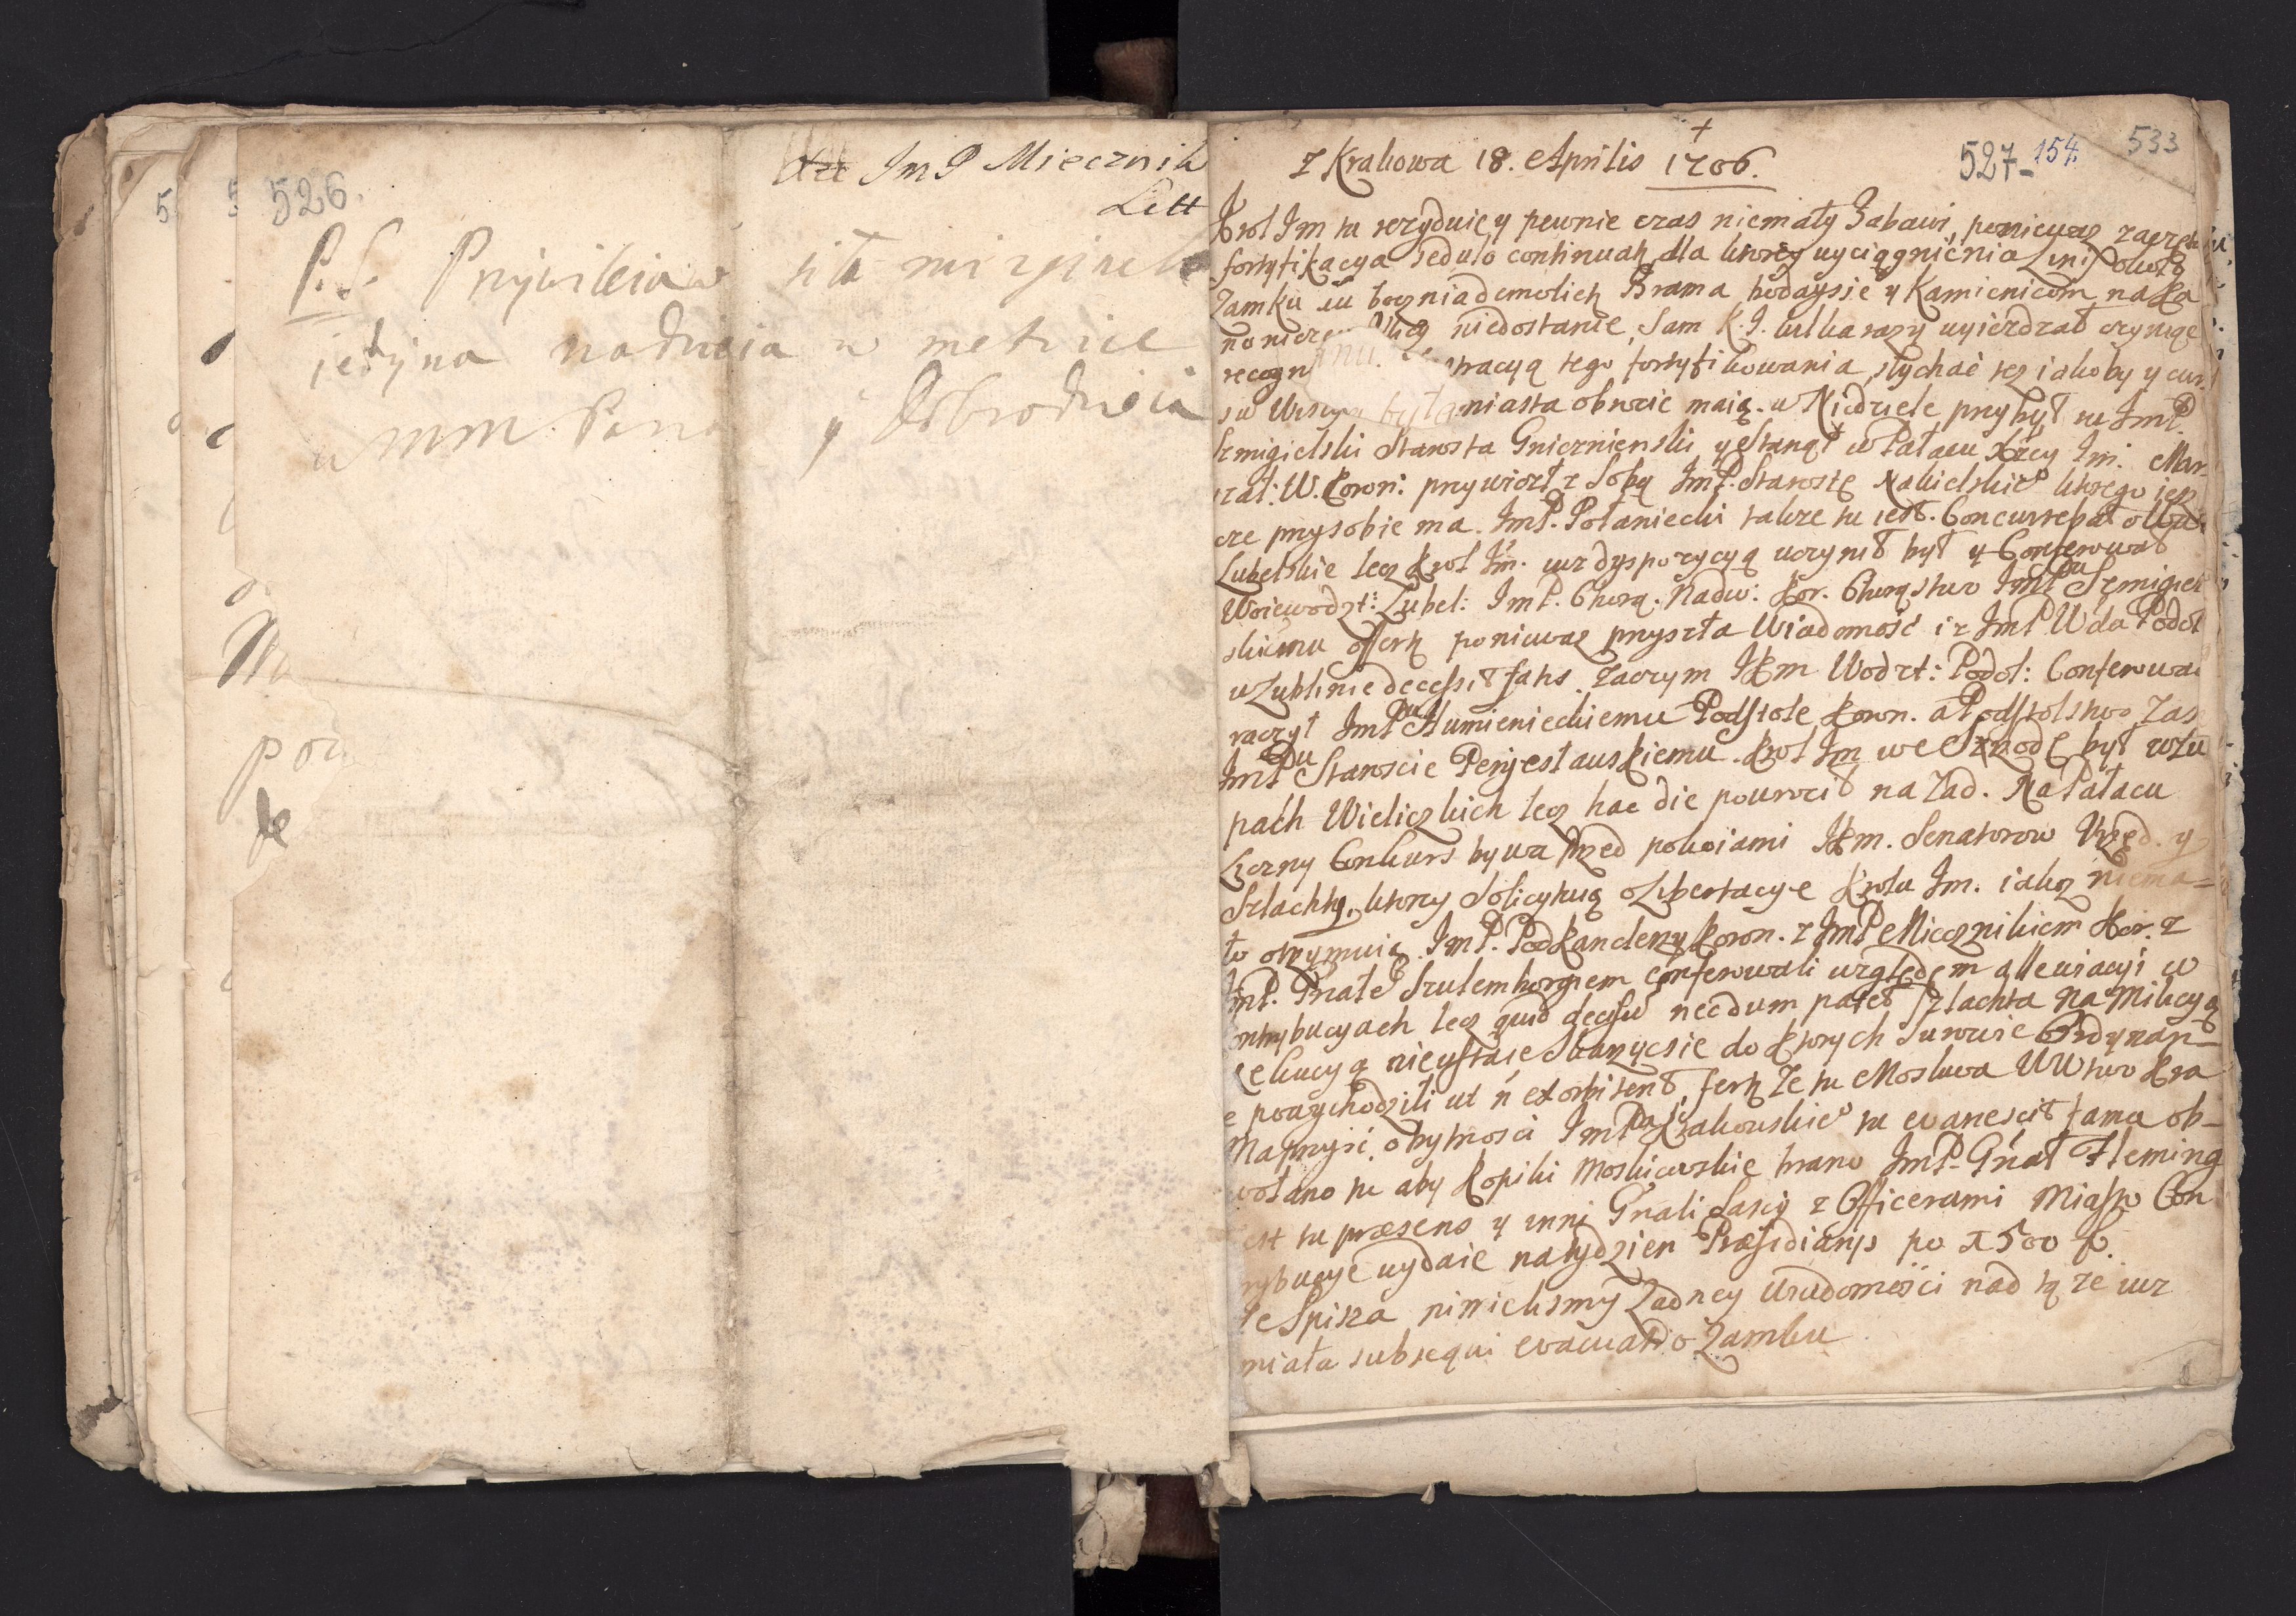 526.
Im P Miecznik
Litt
P.S. Przywileiow siła mi zginęło
iedyna nadzieia w metrice
w mm Pana y Dobrodzieia
+
z Krakowa 18. Aprilis 1706.
527- 154. 533
Krol Im tu rezyduie y pewnie czas niemały Zabawi, poniewaz zaczęta
fortyfikacya sedulo continuat, dla ktorey wyciągnienia Lini około
Zamku iuz demolit Brama podaysie y Kamienicom na Ka
niedostanie, Sam K. J. kilka razy wyiezdzał czyniąc
recogn tego fortyfikowania, słychać tez iakoby y cur
su Wisły miasta obrocic maią. w Niedziele przybył tu ImP
Szmigielski Starosta Gnieznienski y stanął w Pałacu Xcey Im. Mar
szał: W. Koron: przywiozł z Sobą ImP. Starostę Nakielskie ktorego iesz
cze przy sobie ma. ImP. Połaniecki takze tu iest. Concurrebat o
Lubelskie lecz Krol Im. iuz dyspozycyą uczynił był y Conferował
Woiewodzt: Lubel: ImP. Chorą. Nadw: Kor. Chorąstwo ImPu Szmigiel
skiemu offert poniewaz przyszła Wiadomość iz ImP Wda Podol
w Lublinie decessit fatis. Zaczym JKm Wodzt: Podol: Conferować
raczył ImPu Humienieckiemu Podstole Koron. a Podstolstwo Zas
ImPu Staroscie Perejesławskiemu. Krol Im we Srzodę był w Zu
pach Wieliczkich lecz hac die powrocił na Zad. Na Pałacu
Liczny Conkurs bywa przed pokoiami JKm. Senatorow Vrzęd. y
Szlachty, ktorzy Solicytuią o Libertacye Krolu Im. iakoz niema-
ło otrzymuią. ImP. Podkanclerzy Koron. z ImP Miecznikiem Kor. z
ImP. Gnałe Szulemborgiem conferowali względem alleviacyi w
ontrybucyach lecz quid decisu necdum patet Szlachta na Milicyą
ekucyą nieustaie skarzycsie do ktorych surowe Ordynan-
e powychodzili ut n exorbitent, fert Ze tu Moskwa WWtwo Kra
Ma przyść, o bytnosci ImPa Krakowskie tu evanescit fama ob-
wołano tu aby Kopiki Moskiewskie brano ImP. Gnał Fleming
est tu præsens y inni Gnali Sascy z Officerami Miasto Con
rybucye wydaie na tydzien Præsidianis po π 500 f.
Ze Spisza nimielismy Zadney Wiadomości nad tą ze iuz
miała subsequi evacuatio Zamku